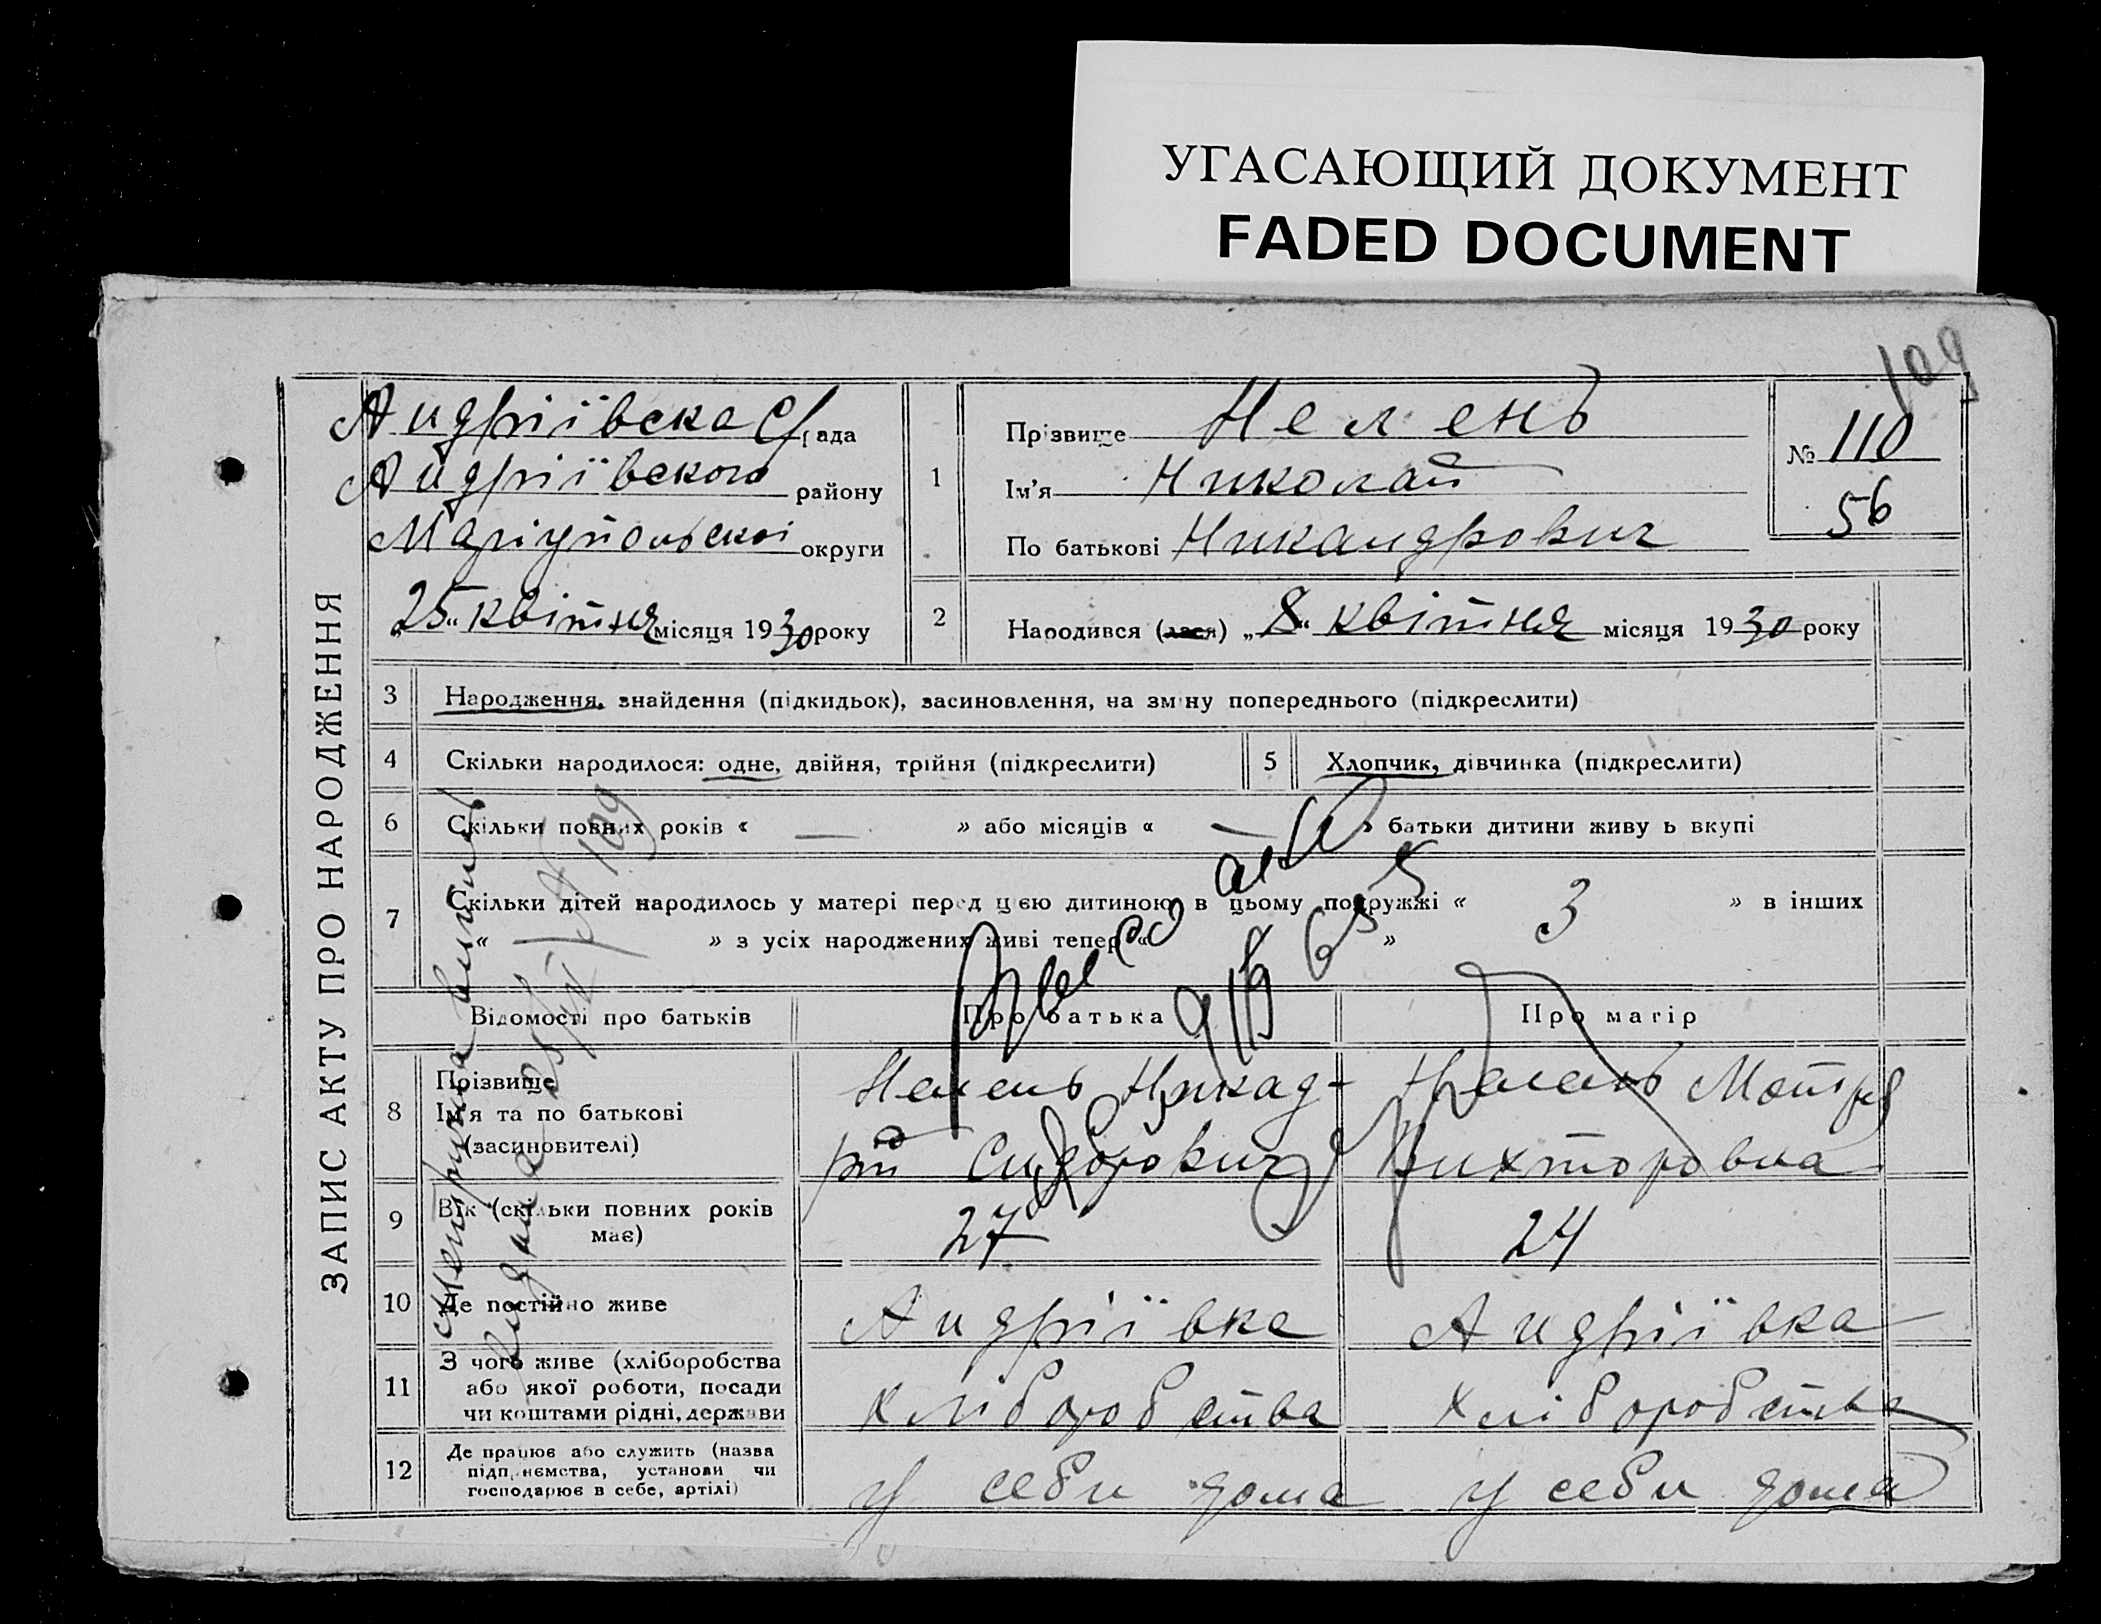 УГАСАЮЩИЙ ДОКУМЕНТ
FADED DOCUMENT
109
ЗАПИС АКТУ ПРО НАРОДЖЕННЯ
Андріївська С/рада
Андріївского району
Маріупольскоі округи
„25“ квітня місяця 1930 року
1
Прізвище Нелень
Ім'я Николай
По батькові Никандрович
№ 110
56
2 Народився (лася) „8“ квітня місяця 1930 року
3 Народження, знайдення (підкидьок), засиновлення, на зміну попереднього (підкреслити)
4 Скільки народилося: одне, двійня, трійня (підкреслити) 5 Хлопчик, дівчинка (підкреслити)
6 Скільки повних років « — » або місяців « — » батьки дитини живуть вкупі
7 Скільки дітей народилось у матері перед цією дитиною в цьому подружжі « 3 » в інших
« » з усіх народжених живі тепер « »
Відомості про батьків Про батька Про матір
8 Прізвище
Ім'я та по батькові
(засиновителі)
Нелень Никад-
рій Сидорович
Нелень Мотря
Вихторовна
9 Вік (скільки повних років
має)
27 24
10 Де постійно живе Андріївка Андріївка
11 З чого живе (хліборобства
або якої роботи, посади
чи коштами рідні, держави
хліборобства хліборобства
12 Де працює або служить (назва
підприємства, установи чи
господарює в себе, артілі)
у себи дома у себи дома
№ 109